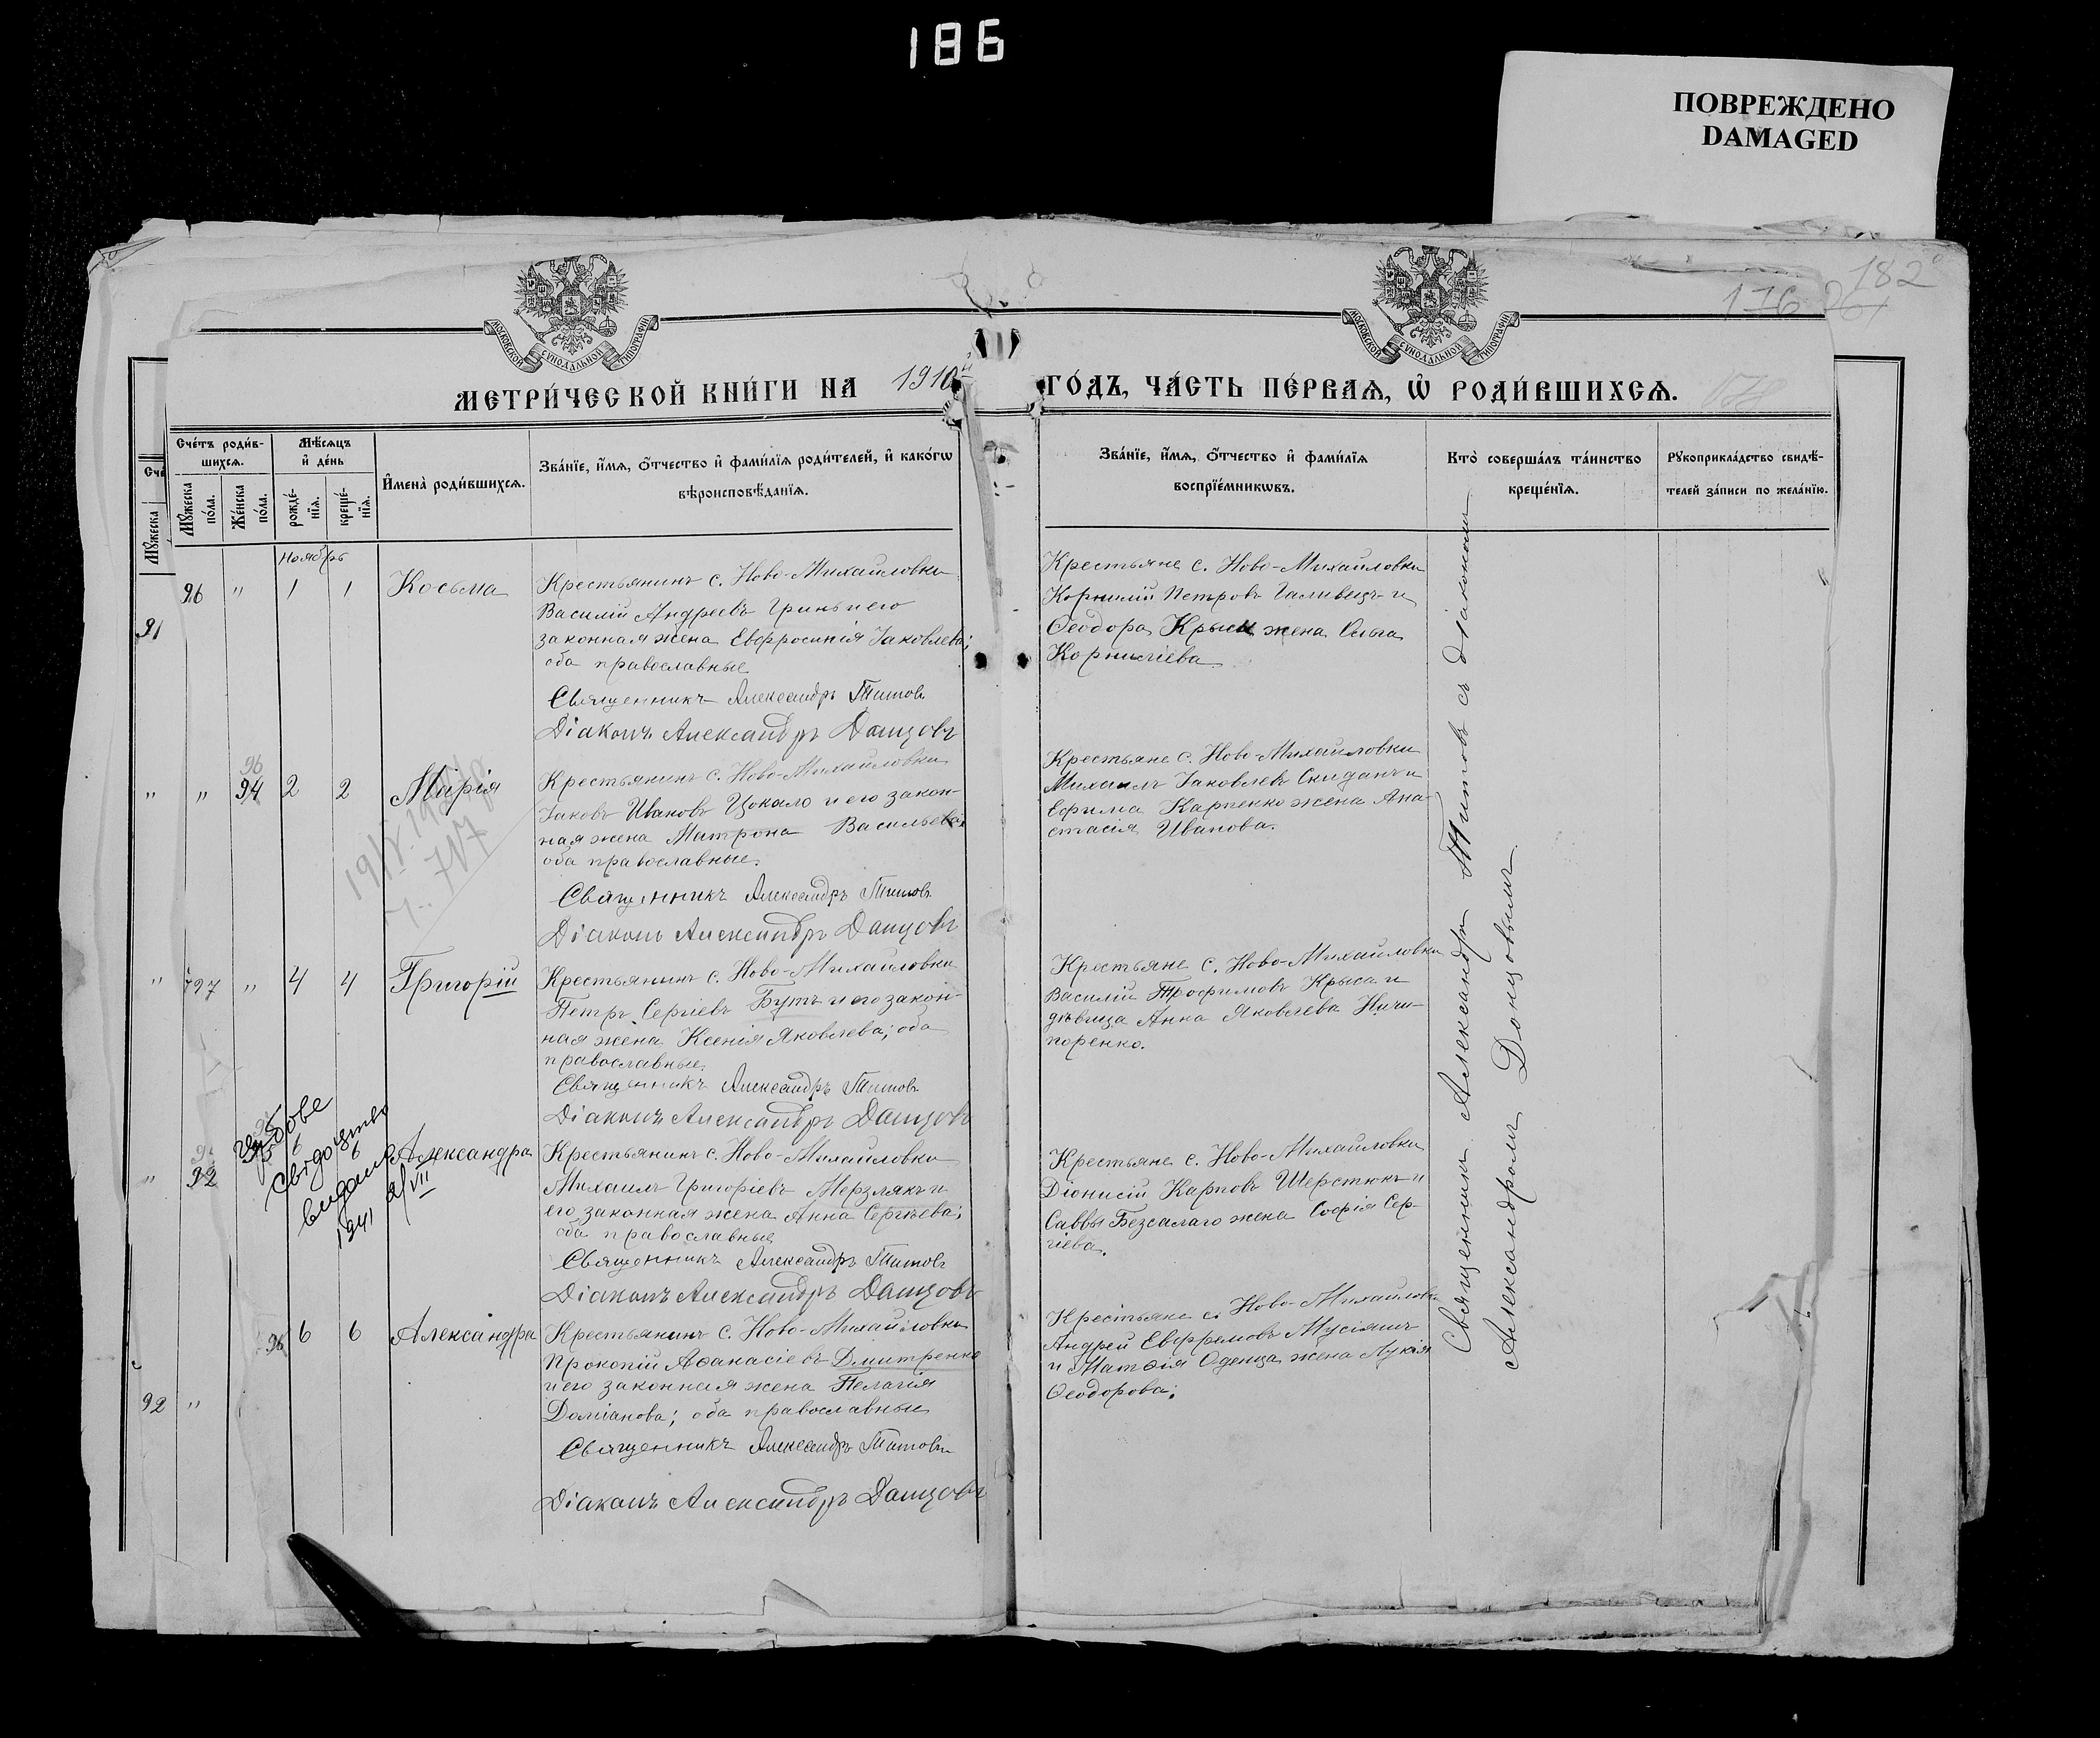 186
ПОВРЕЖДЕНО
DAMAGED
182
176
МОСКОВСКОЙ СѴНОДАЛЬНОЙ ТИПОГРАФІИ
МОСКОВСКОЙ СѴНОДАЛЬНОЙ ТИПОГРАФІИ
МЕТРИ́ЧЕСКОЙ КНИ́ГИ НА 1910й ГО́ДЪ, ЧА́СТЬ ПЕ́РВАѦ, Ѡ҆ РОДИ́ВШИХСѦ.
Сче́тъ роди́в-
шихсѧ.
Мꙋ́жеска
по́ла.
Же́нска
по́ла.
Мѣ́сѧцъ
и҆ де́нь
рожде́-
нїѧ.
креще́-
нїѧ.
И҆мена̀ роди́вшихсѧ.
Зва́нїе, и҆́мѧ, ѻ҆́тчество и҆ фами́лїѧ роди́телей, и҆ како́гѡ
вѣроисповѣ́данїѧ.
Зва́нїе, и҆́мѧ, ѻ҆́тчество и҆ фами́лїѧ
воспрїе́мникѡвъ.
Кто̀ соверша́лъ та́инство
креще́нїѧ.
Рꙋкоприкла́дство свидѣ́-
телей за́писи по жела́нїю.
Сче
Мꙋ́жеска
Ноябрь
96 " 1 1 Косьма
Крестьянинъ с. Ново-Михайловки
Василій Андреевъ Гринь и его
законная жена Евфросинія Іаковлева;
оба православные
Священникъ Александръ Титовъ
Діаконъ Александръ Донцовъ
Крестьяне с. Ново-Михайловки
Корнилій Петровъ Галивецъ и
Ѳеодора Крыси жена Ольга
Корниліева
91
96
" " 94 2 2 Марія
Крестьянинъ с. Ново-Михайловки
Іаковъ Ивановъ Цокало и его закон-
ная жена Матрона Васильева;
оба православные.
Священникъ Александръ Титовъ
Діаконъ Александръ Донцовъ
Крестьяне с. Ново-Михайловки
Михаилъ Іаковлевъ Скиданъ и
Ефима Карпенко жена Ана-
стасія Иванова.
" 97 " 4 4 Григорій
Крестьянинъ с. Ново-Михайловки
Петръ Сергіевъ Бутъ и его закон-
ная жена Ксенія Яковлева; оба
православные.
Священникъ Александръ Титовъ
Діаконъ Александръ Донцовъ
Крестьяне с. Ново-Михайловки
Василій Трофимовъ Крыса и
дѣвица Анна Яковлева Ничи-
поренко.
свідоцтво
видано
1941 VII
" 92 95 6 6 Александра
Крестьянинъ с. Ново-Михайловки
Михаилъ Григоріевъ Мерзлякъ и
его законная жена Анна Сергѣева;
оба православные
Священникъ Александръ Титовъ
Діаконъ Александръ Донцовъ
Крестьяне с. Ново-Михайловки
Діонисій Карповъ Шерстюкъ и
Саввы Безсалаго жена Софія Сер-
гіева.
96 6 6 Александра
Крестьянинъ с. Ново-Михайловки
Прокопій Аѳанасіевъ Дмитренко
и его законная жена Пелагія
Даміанова; оба православные
Священникъ Александръ Титовъ
Діаконъ Александръ Донцовъ
Крестьяне с. Ново-Михайловки
Андрей Евфремовъ Мусіянъ
и Матѳія Оденца жена Лукія
Ѳеодорова;
92 "
Священникъ Александръ Титовъ съ діакономъ
Александромъ Донцовымъ